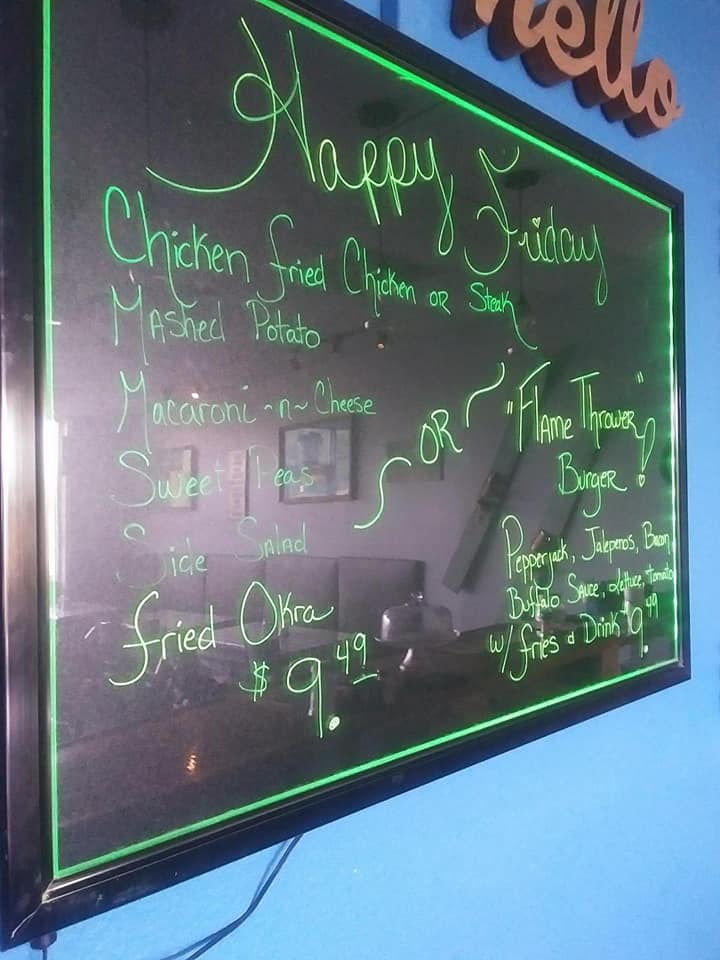 hello
Happy Friday
Chicken fried Chicken OR Steak
Mashed Potato
Macaroni ~n~ Cheese
Sweet Peas
Side Salad
fried Okra
$9.49
OR
"Flame Thrower"
Burger!
Pepperjack, Jalepenos, Bacon
Buffalo Sauce, Lettuce, Tomato
w/ fries & Drink $9.49